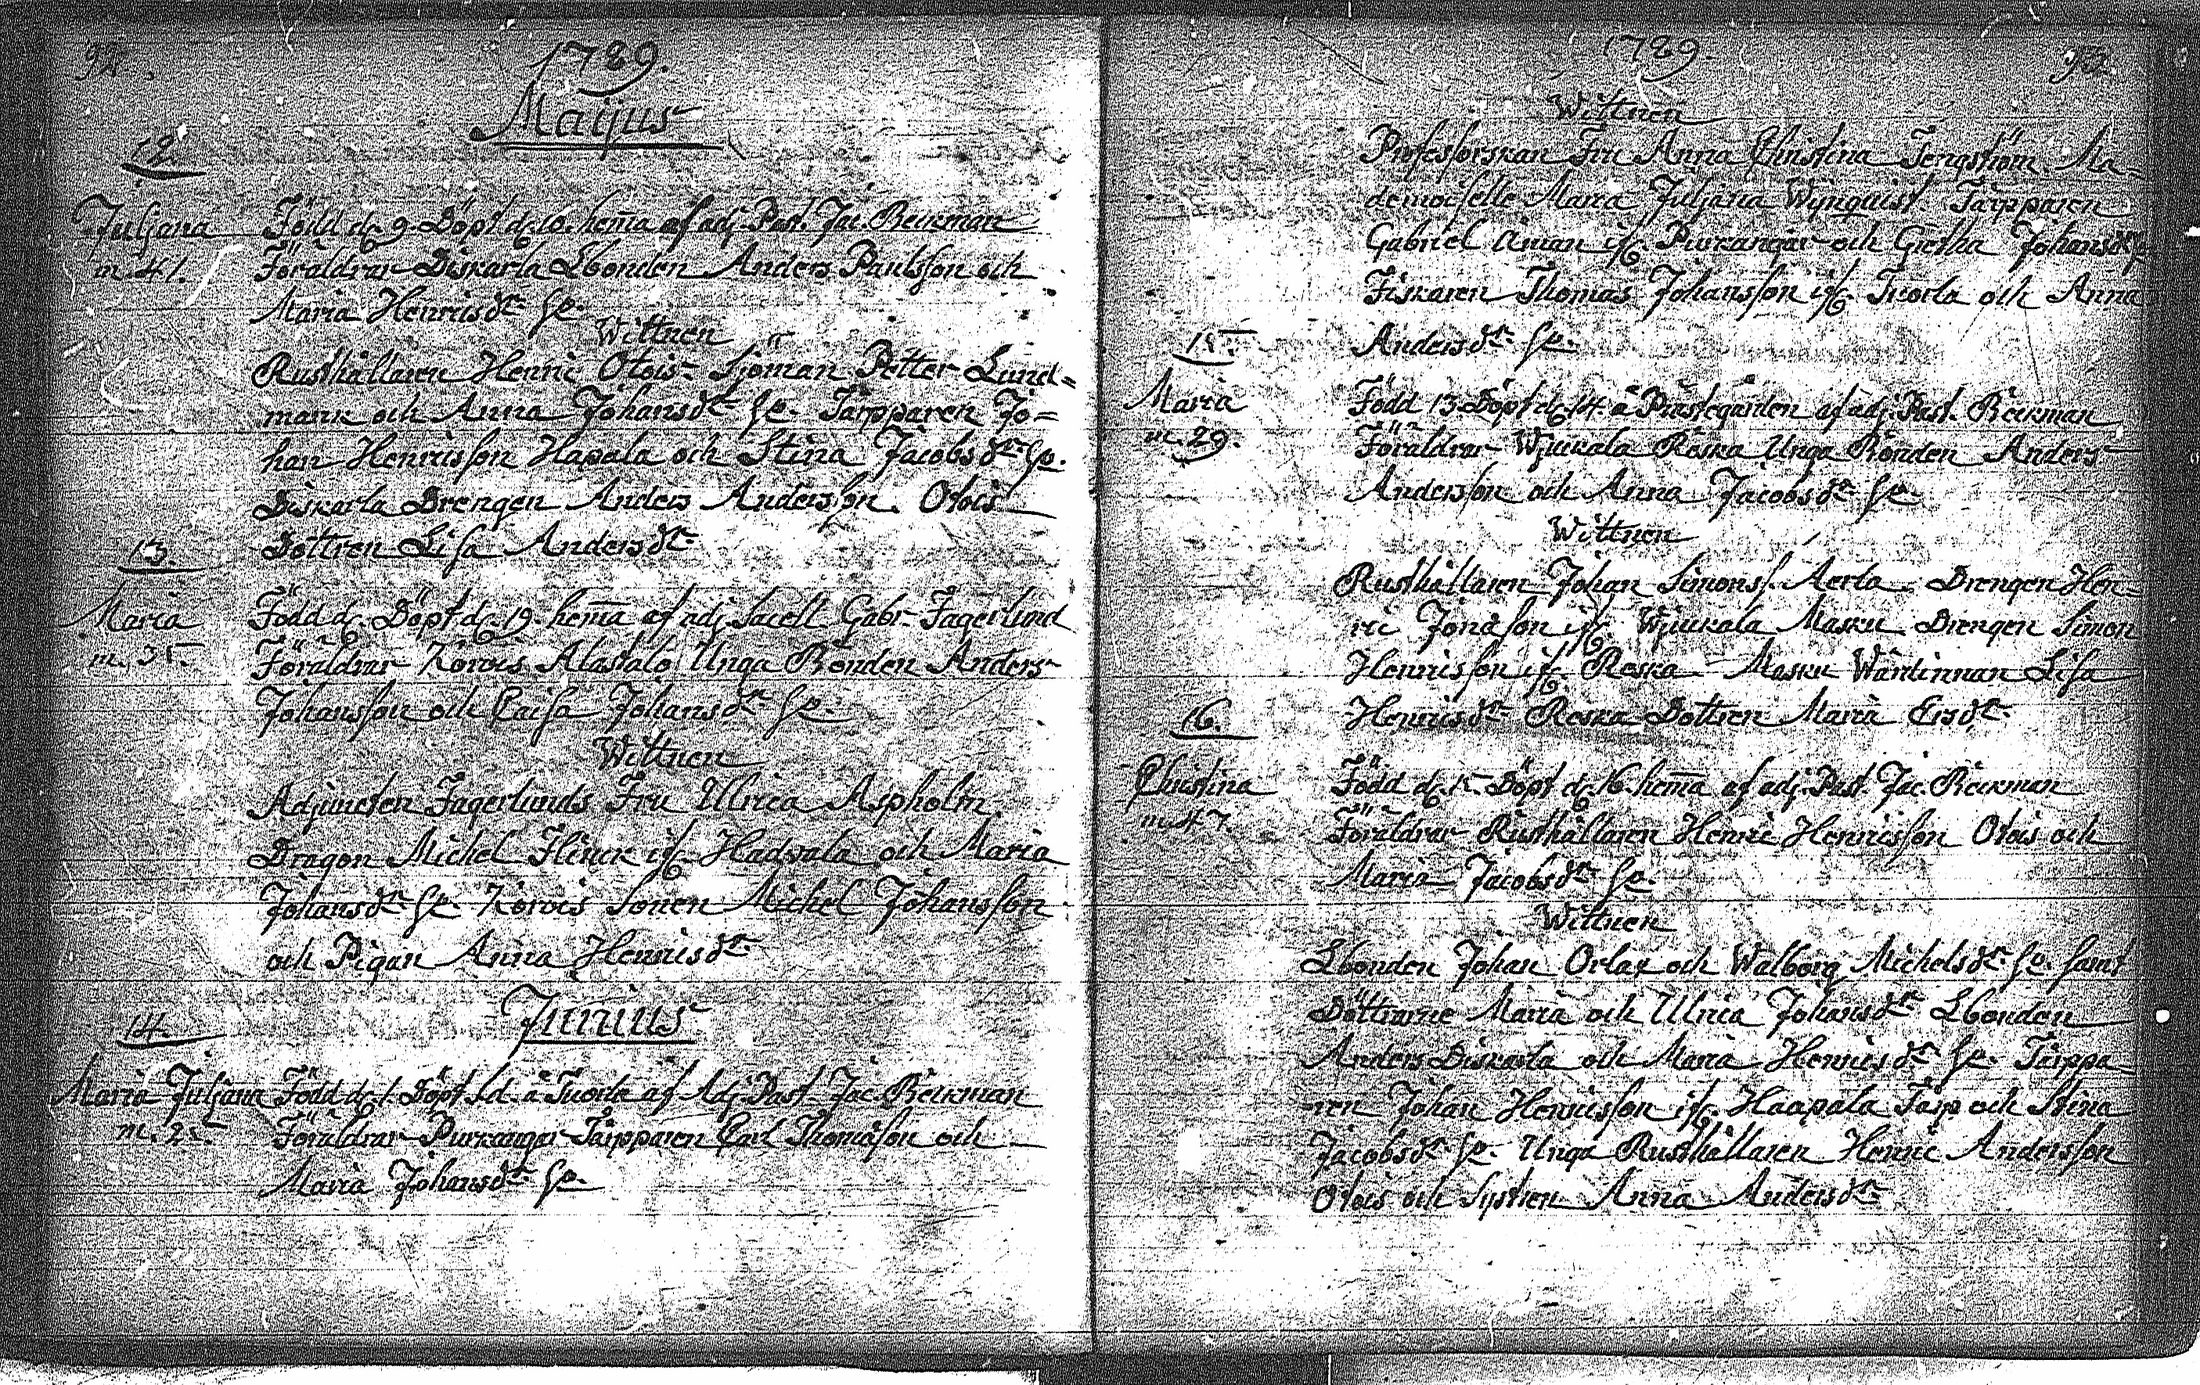 92.
1789.
Maijus
12.
Juljana Född d. 9. Döpt d. 10. hem̄a af adj. Past. Jac. Beckman
m. 41. Föräldrar Diskarla Lbonden Anders Paulsson och
Maria Henricsdr h.
Wittnen
Rusthållaren Henric Otois Sjöman Petter Lund=
mark och Anna Johansdr h. Tårpparen Jo=
han Henricsson Hapala och Stina Jacobsdr h.
Diskarla Drengen Anders Andersson. Otois
Dottren Lisa Andersdr
13.
Maria Född d. Döpt d. 19. hem̄a af adj. Sacell. Gabr. Fagerlund
m. 35. Föräldrar Körvis Alastalo Unga Bonden Anders
Johansson och Caisa Johansdr h.
Wittnen
Adjuncten Fagerlunds Fru Ulrica Aspholm
Dragon Michel Flinck ifr. Hadvala och Maria
Johansdr h. Körvis Sonen Michel Johansson
och Pigan Anna Henricsdr
Junius
14.
Maria Juljana Född d. 1. Döpt s.d. å Tuorla af Adj. Past. Jac. Beckman
m. 25. Föräldrar Purkangar Tårpparen Carl Thomasson och
Maria Johansdr h.
1789.
93.
Wittnen
Professorskan Fru Anna Christina Tengström. Ma=
demoiselle Maria Juljana Wijnquist Tårpparen
Gabriel Åman ifr. Purkangar och Gretha Johansdr h.
Fiskaren Thomas Johansson ifr. Tuorla och Anna
Andersdr h.
15.
Maria Född 13. Döpt d. 14. å Prästegården af adj. Past. Beckman
m. 29. Föräldrar Wjuckala Reska Unga Bonden Anders
Andersson och Anna Jacobsdr h.
Wittnen
Rusthållaren Johan Simonss. Aerla Drengen Hen=
ric Jonasson ifr. Wjuckala Masku Drengen Simon
Henricsson ifr. Reska Masku Wärdinnan Lisa
Henricsdr Reska Dottren Maria Ersdr
16.
Christina Född d. 15. Döpt d. 16. hem̄a af adj. Past. Jac. Beckman
m. 47. Föräldrar Rusthållaren Henric Henricsson Otois och
Maria Jacobsdr h.
Wittnen
Lbonden Johan Orlax och Walborg Michelsdr h. samt
Döttrarne Maria och Ulrica Johansdr Lbonden
Anders Diskarla och Maria Henricsdr h. Tårppa
ren Johan Henricsson ifr. Haapala Tårp och Stina
Jacobsdr h. Unga Rusthållaren Henric Andersson
Otois och Systren Anna Andersdr